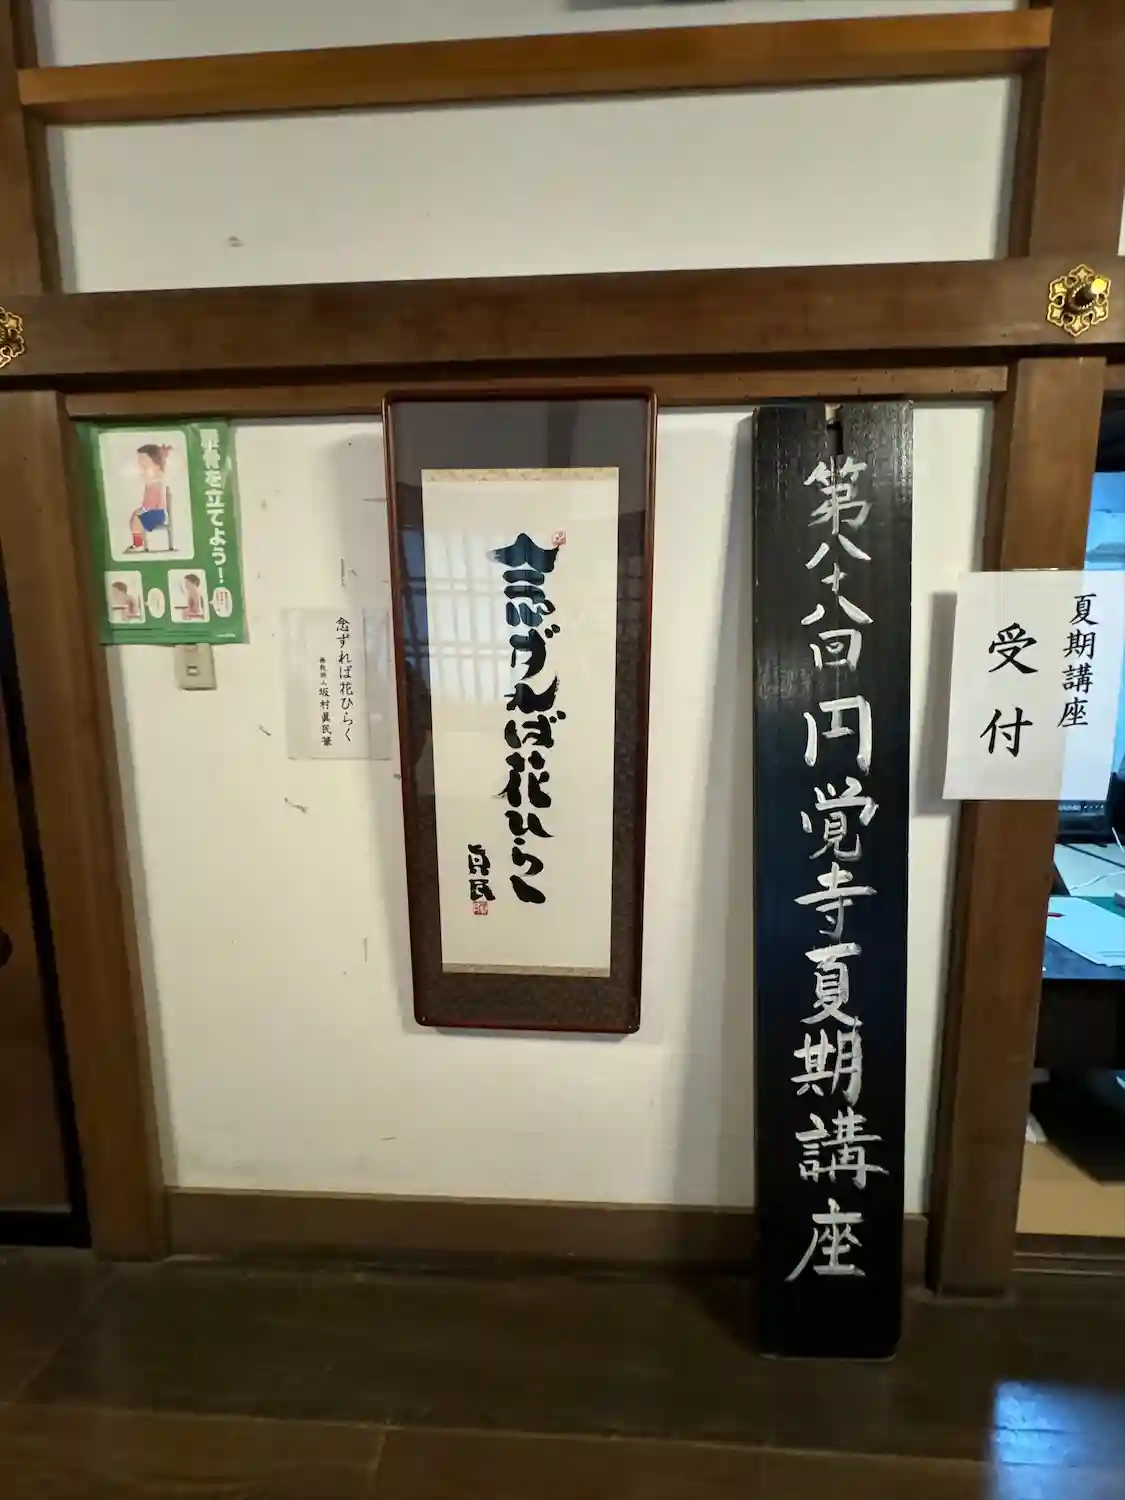 夏期講座
受付
第八十八回 円覚寺夏期講座
念ずれば花ひらく
真民
念ずれば花ひらく
坂村眞民筆
を立てよう!